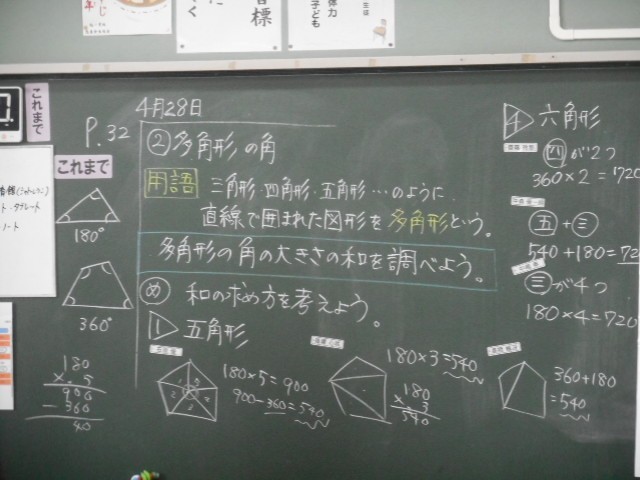 目標
く
体力
子ども
これまで
4月28日
P.32
②多角形の角
用語 三角形・四角形・五角形…のように
直線で囲まれた図形を多角形という。
多角形の角の大きさの和を調べよう。
め 和の求め方を考えよう。
1 五角形
これまで
180°
360°
180
× 5
900
-360
40
180×5=900
900-360=540
180×3=540
180
× 3
540
360+180
=540
4 六角形
四が2つ
360×2=720
五+三
540+180=72
三が4つ
180×4=720
ノート